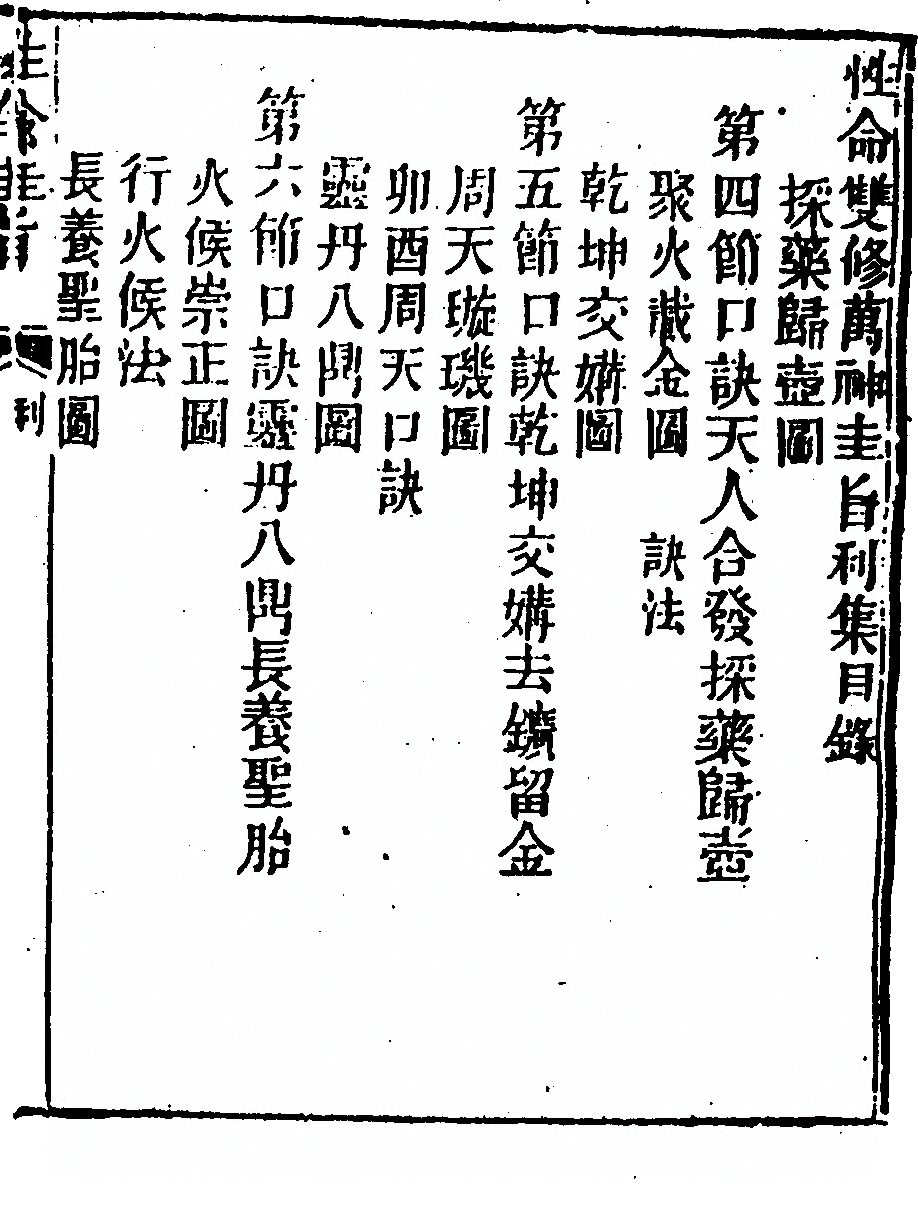 性命雙修萬神圭旨利集目錄
採藥歸壺圖
第四節口訣天人合發採藥歸壺
聚火載金圖　訣法
乾坤交媾圖
第五節口訣乾坤交媾去鑛留金
周天璇璣圖
卯酉周天口訣
靈丹入鼎圖
第六節口訣靈丹入鼎長養聖胎
火候崇正圖
行火候法
長養聖胎圖
性命圭旨
利